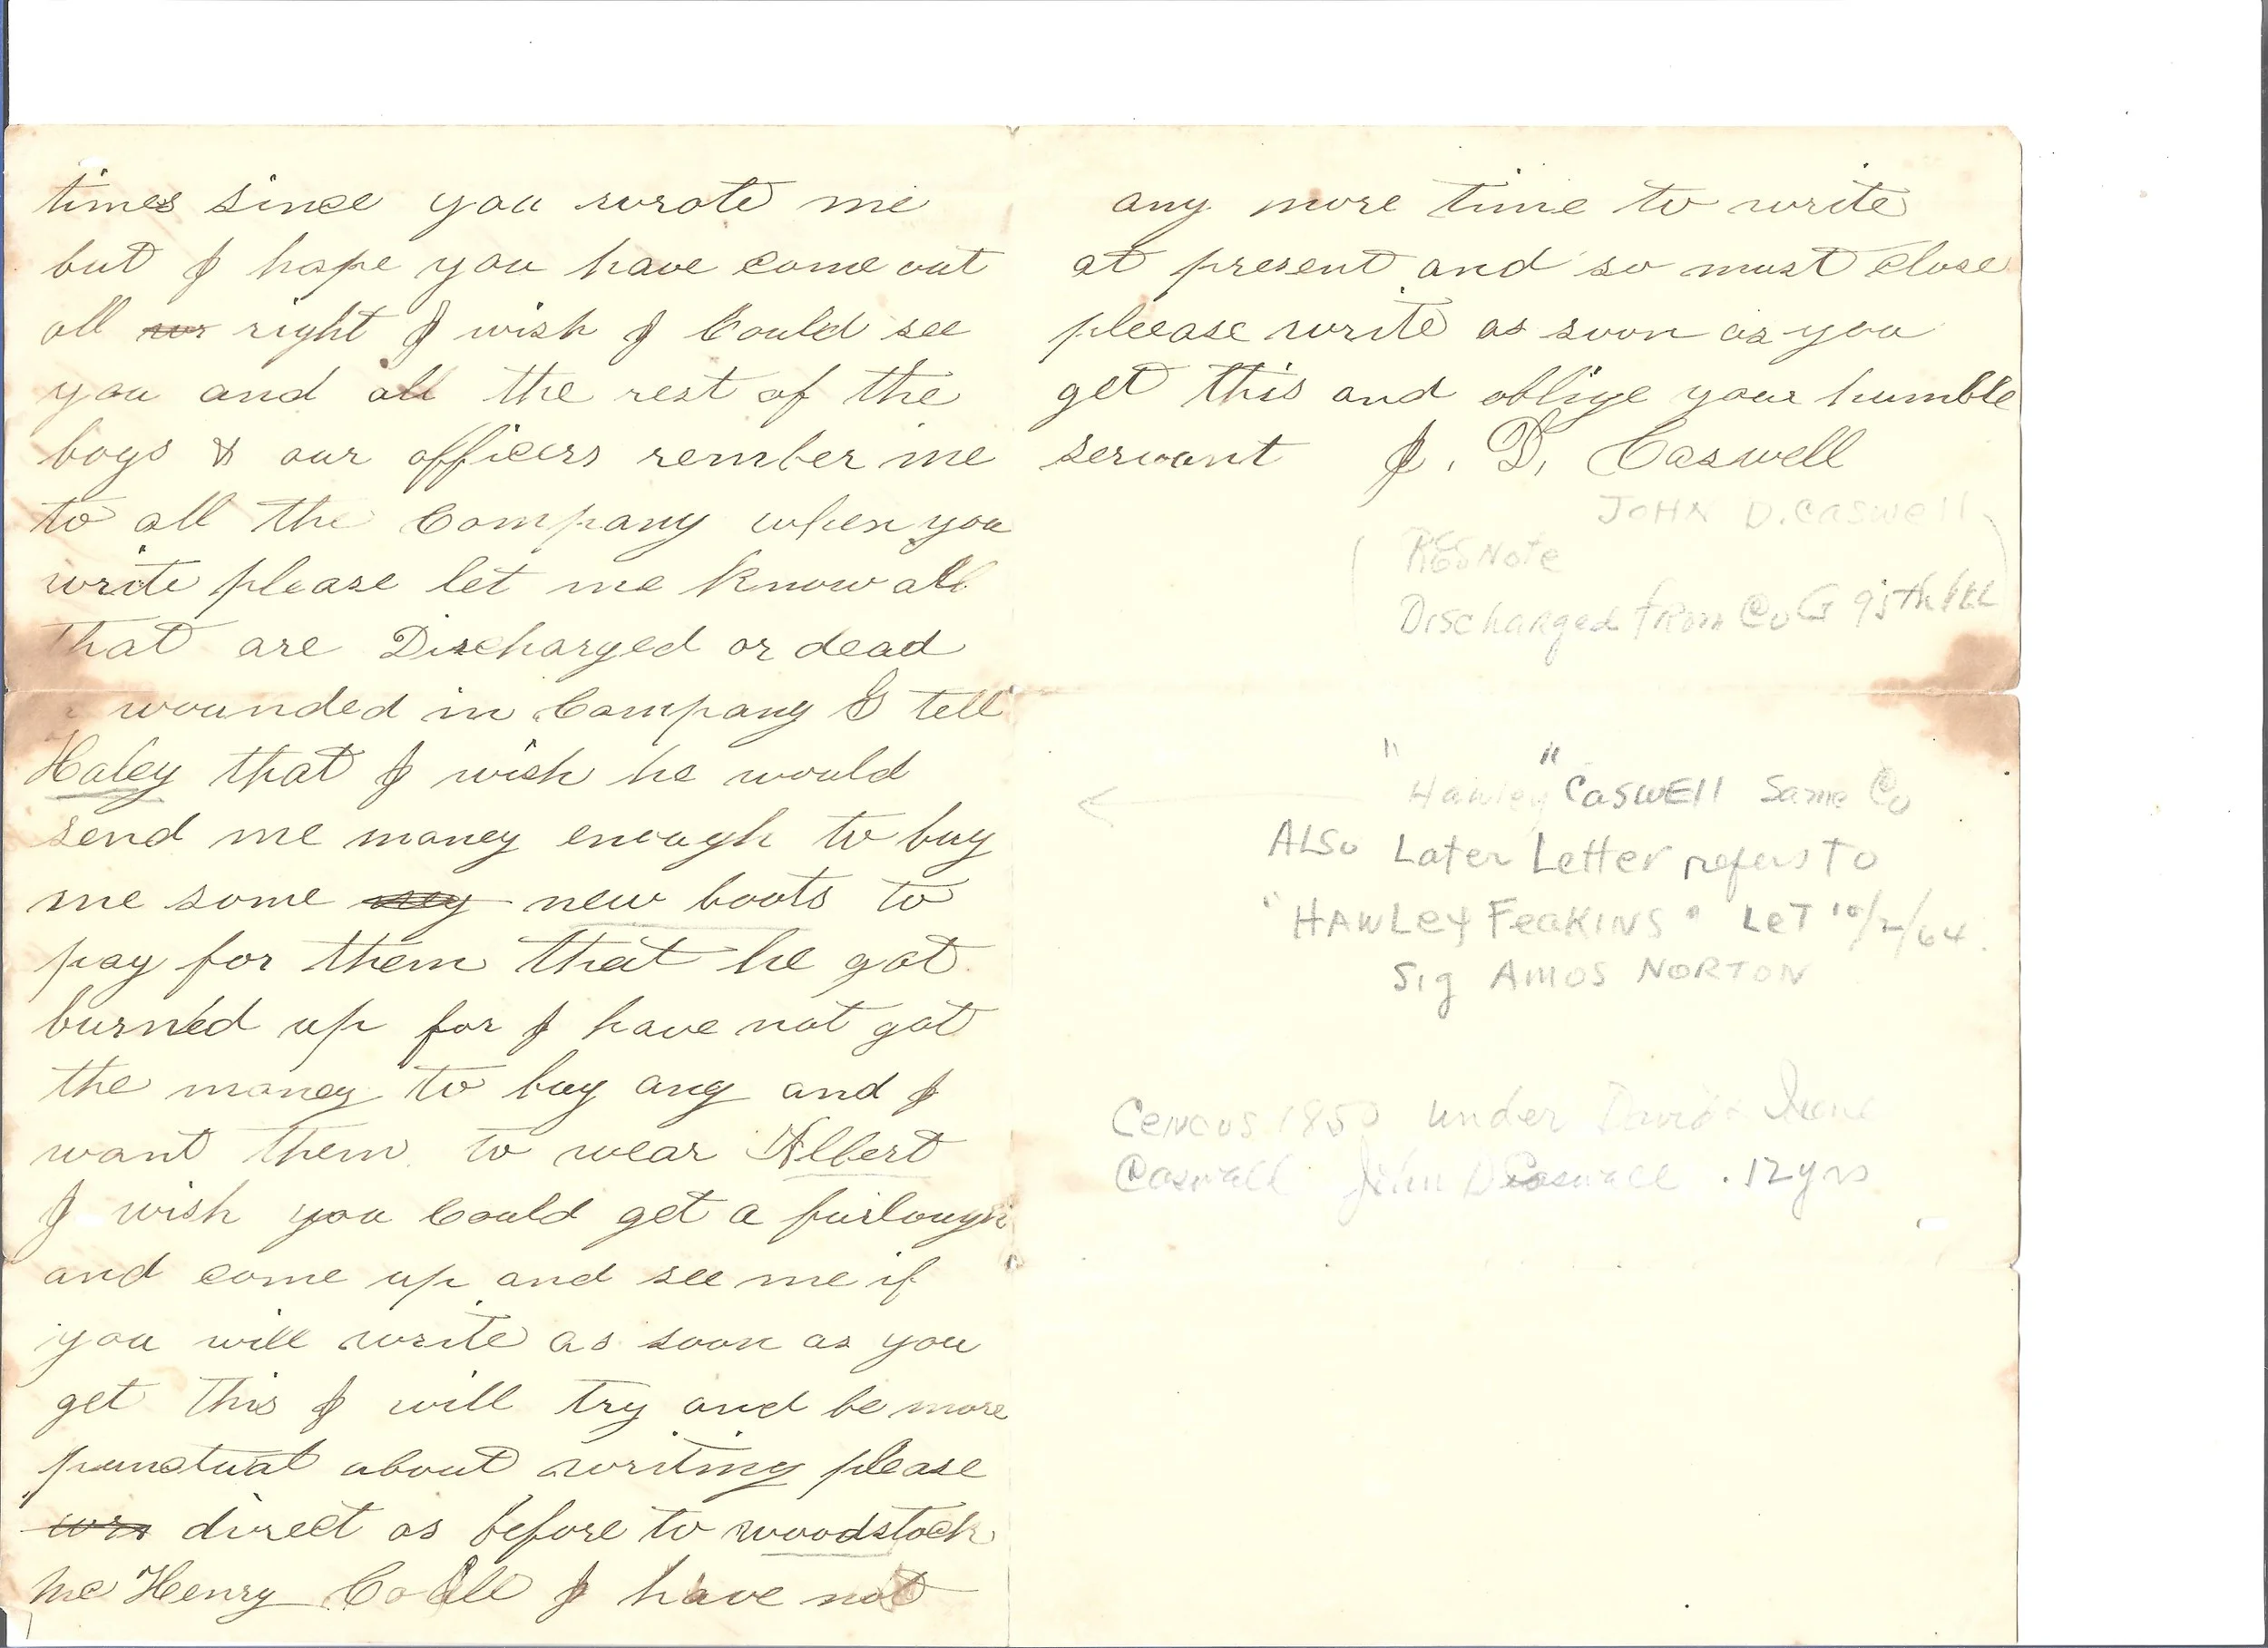 times since you wrote me
but I hope you have come out
all wr right I wish I Could see
you and all the rest of the
boys & our officers rember me
to all the Company when you
write please let me Know all
that are Discharged or dead
wounded in Company G tell
Haley that I wish he would
send me money enough to buy
me some ney new boots to
pay for them that he got
burned up for I have not got
the money to buy any and I
want them to wear Albert
I wish you Could get a furlough
and come up and see me if
you will write as soon as you
get this I will try and be more
punctual about writing please
wrs direct as before to woodstock
Henry Co Ill I have not
any more time to write
at present and so must close
pleease write as soon as you
get this and oblige your humble
servant J. D. Caswell
JOHN D. Caswell
Note
Discharged from Co G 95th Ill
"Hawley" Caswell Same Co
ALSo Later Letter refers To
"HAWLey FeaKINS" LeT 10/2/64
Sig AMOS NORTON
Cencus 1850 under David & Irene
Caswell John D Caswell . 12 yrs